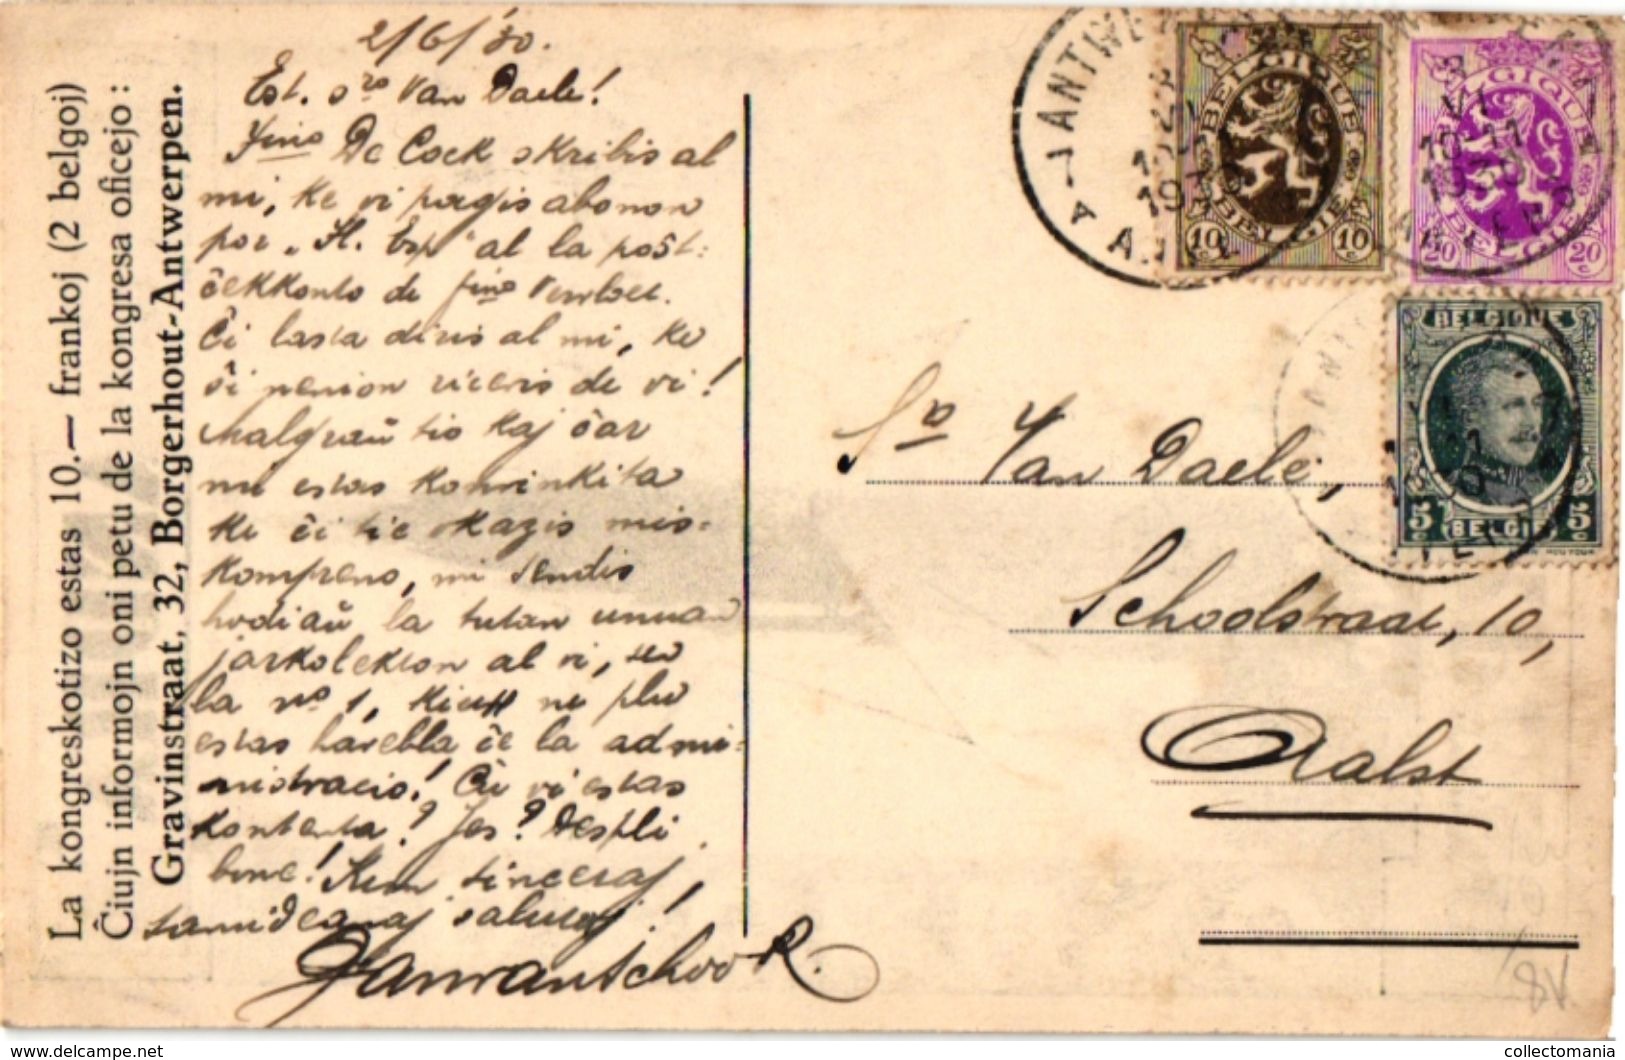 La kongreskotizo estas 10.— frankoj (2 belgoj)
Ĉiujn informojn oni petu de la kongresa oficejo:
Gravinstraat, 32, Borgerhout-Antwerpen.
2/6/30.
Est. sro Van Daele!
Fino De Cock skribis al
mi, ke vi pagis abonon
por „Fl. Esp" al la poŝt=
ĉekkonto de fino Verrloet.
Ĉi lasta diris al mi, ke
ŝi nenion ricevis de vi!
Malgraŭ tio kaj ĉar
mi estas konvinkita
ke ĉi tie okazis mis=
kompreno, mi sendis
hodiaŭ la tutan unuan
jarkolekton al vi, sen
la no 1, kiu ne plu
estas havebla ĉe la admi=
nistracio! Ĉu vi estas
kontenta? Jes? Des pli
bone! Kun sinceraj,
samideanaj salutoj!
So Van Daele,
Schoolstraat, 10,
Aalst
BELGIQUE
BELGIE
10c 10c
BELGIQUE
BELGIE
20c 20c
BELGIQUE
BELGIE
5c 5c
ANTWERPEN
ANVERS
VI
10-11
1930
collectomania
delcampe.net